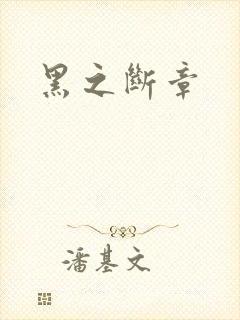 黑之斷章
潘基文